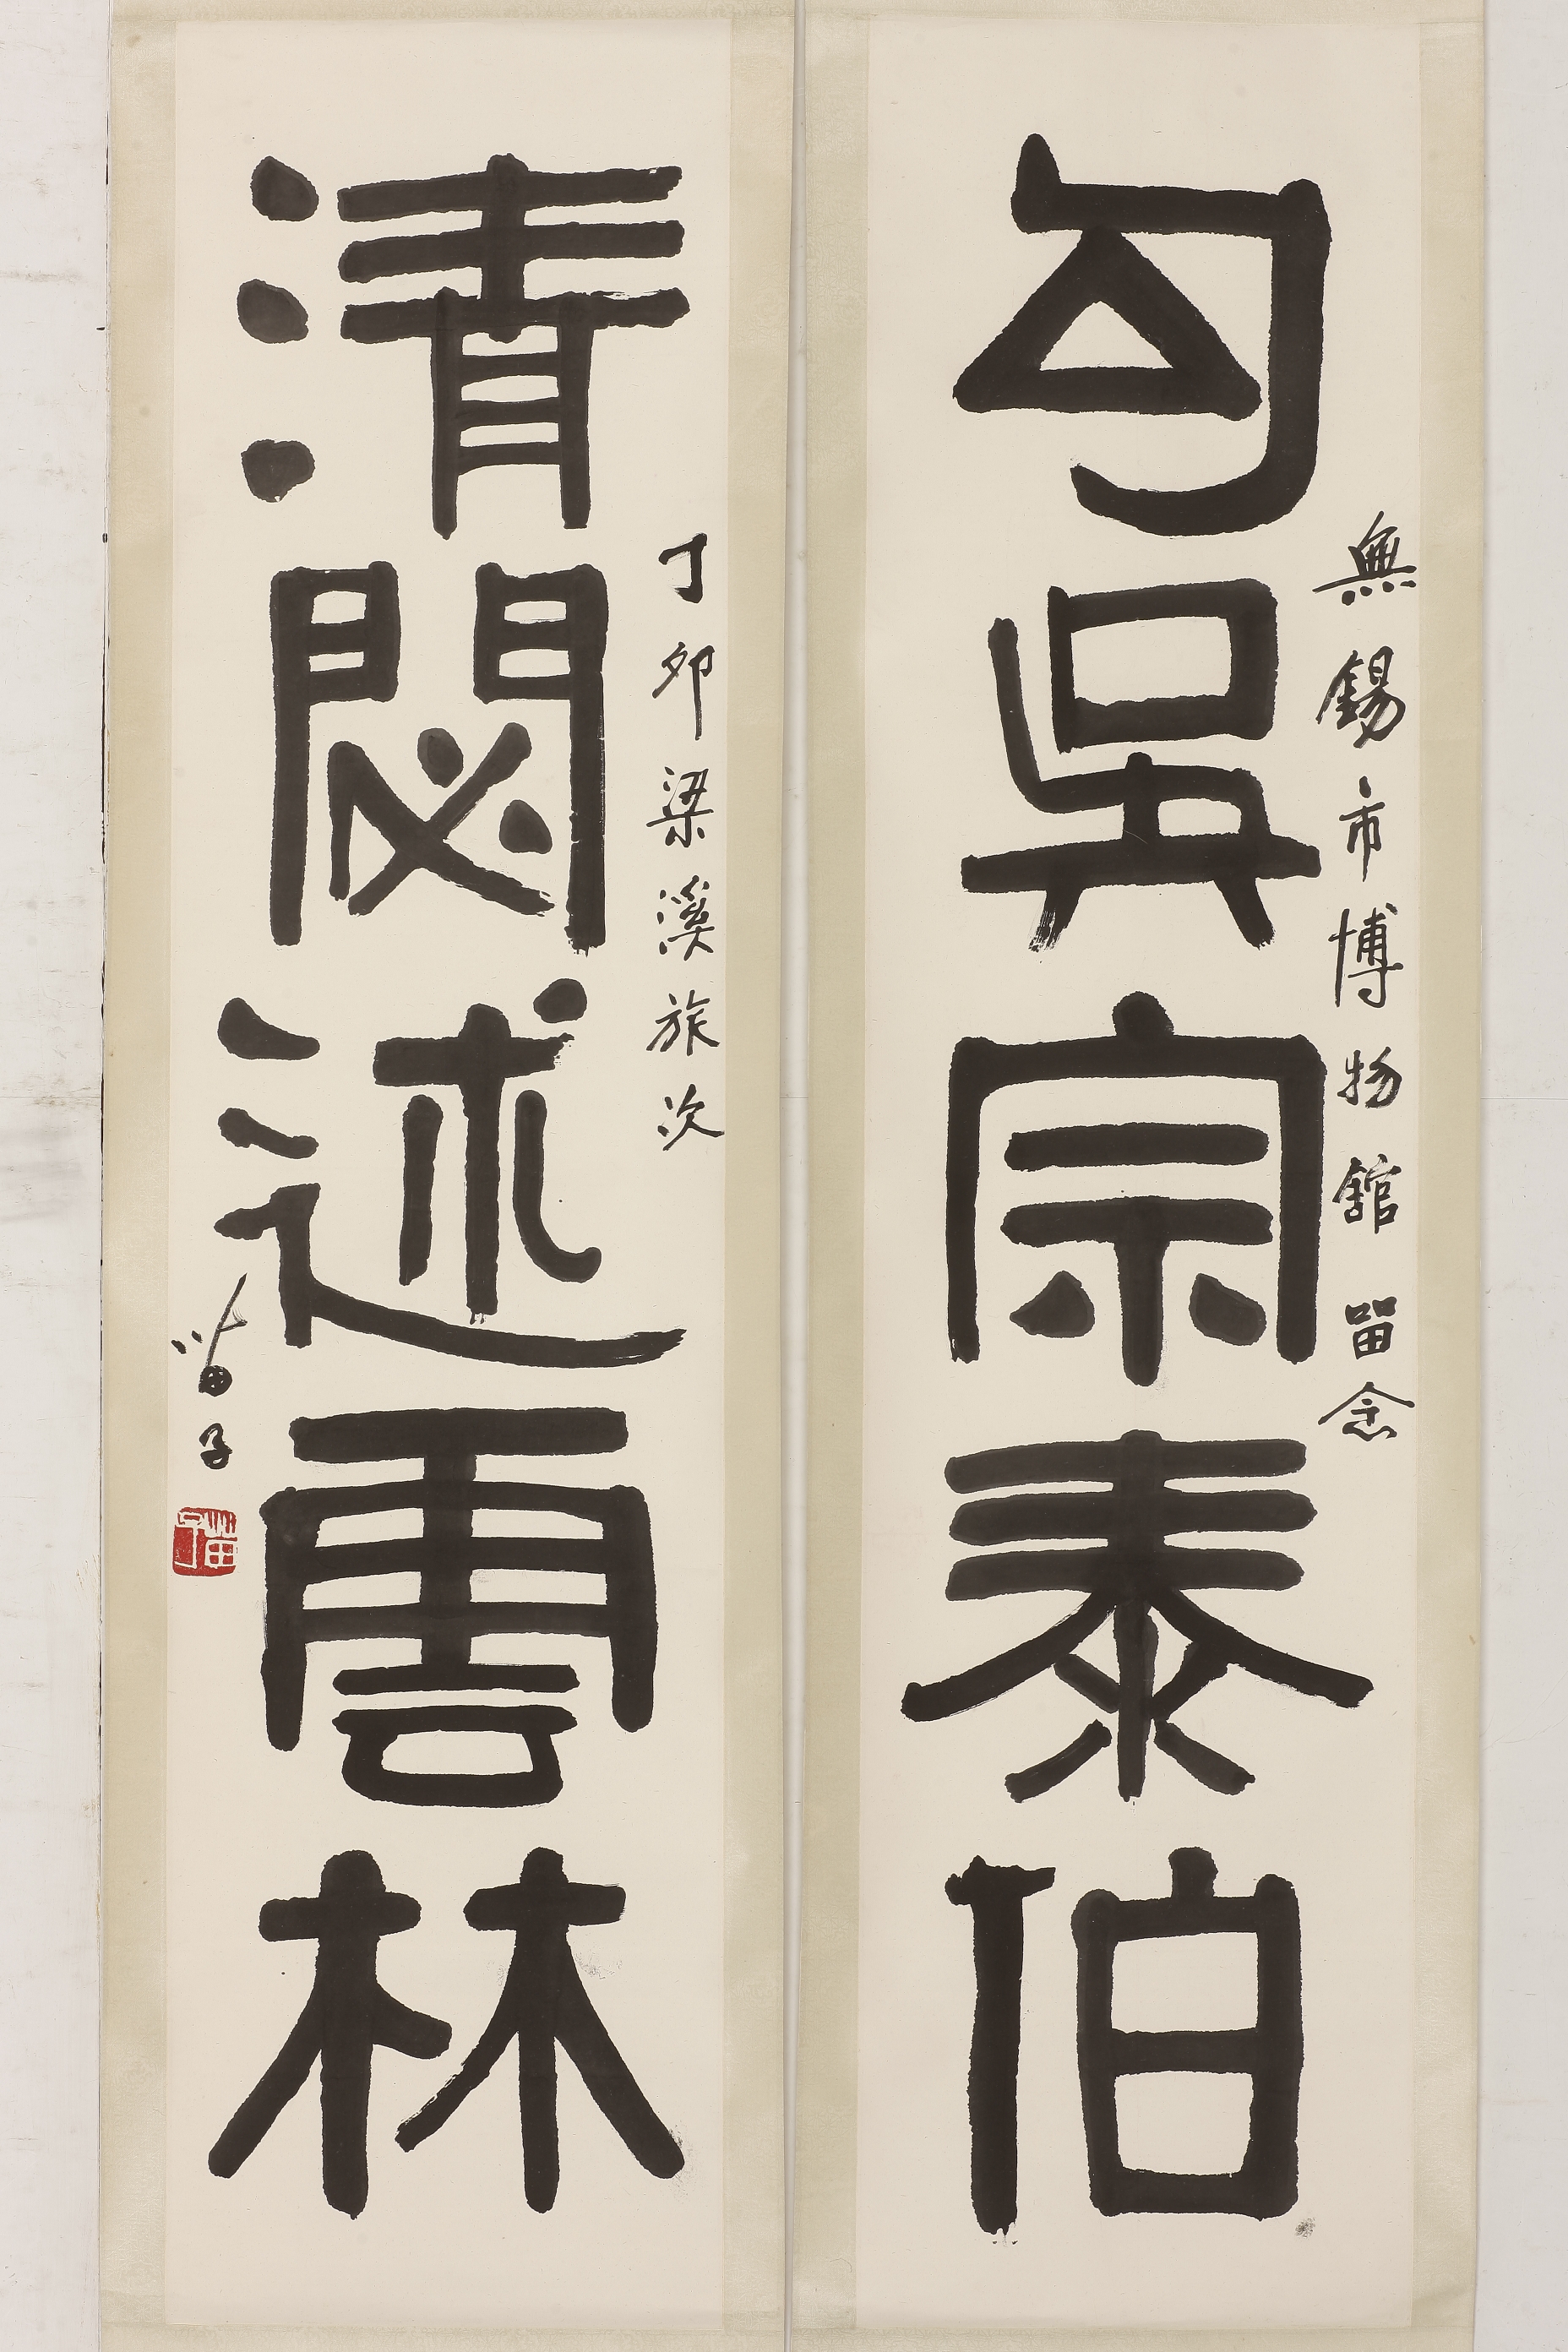 無錫市博物館留念
勾吳宗泰伯
丁卯梁溪旅次
清閟述雲林
苗子
苗子